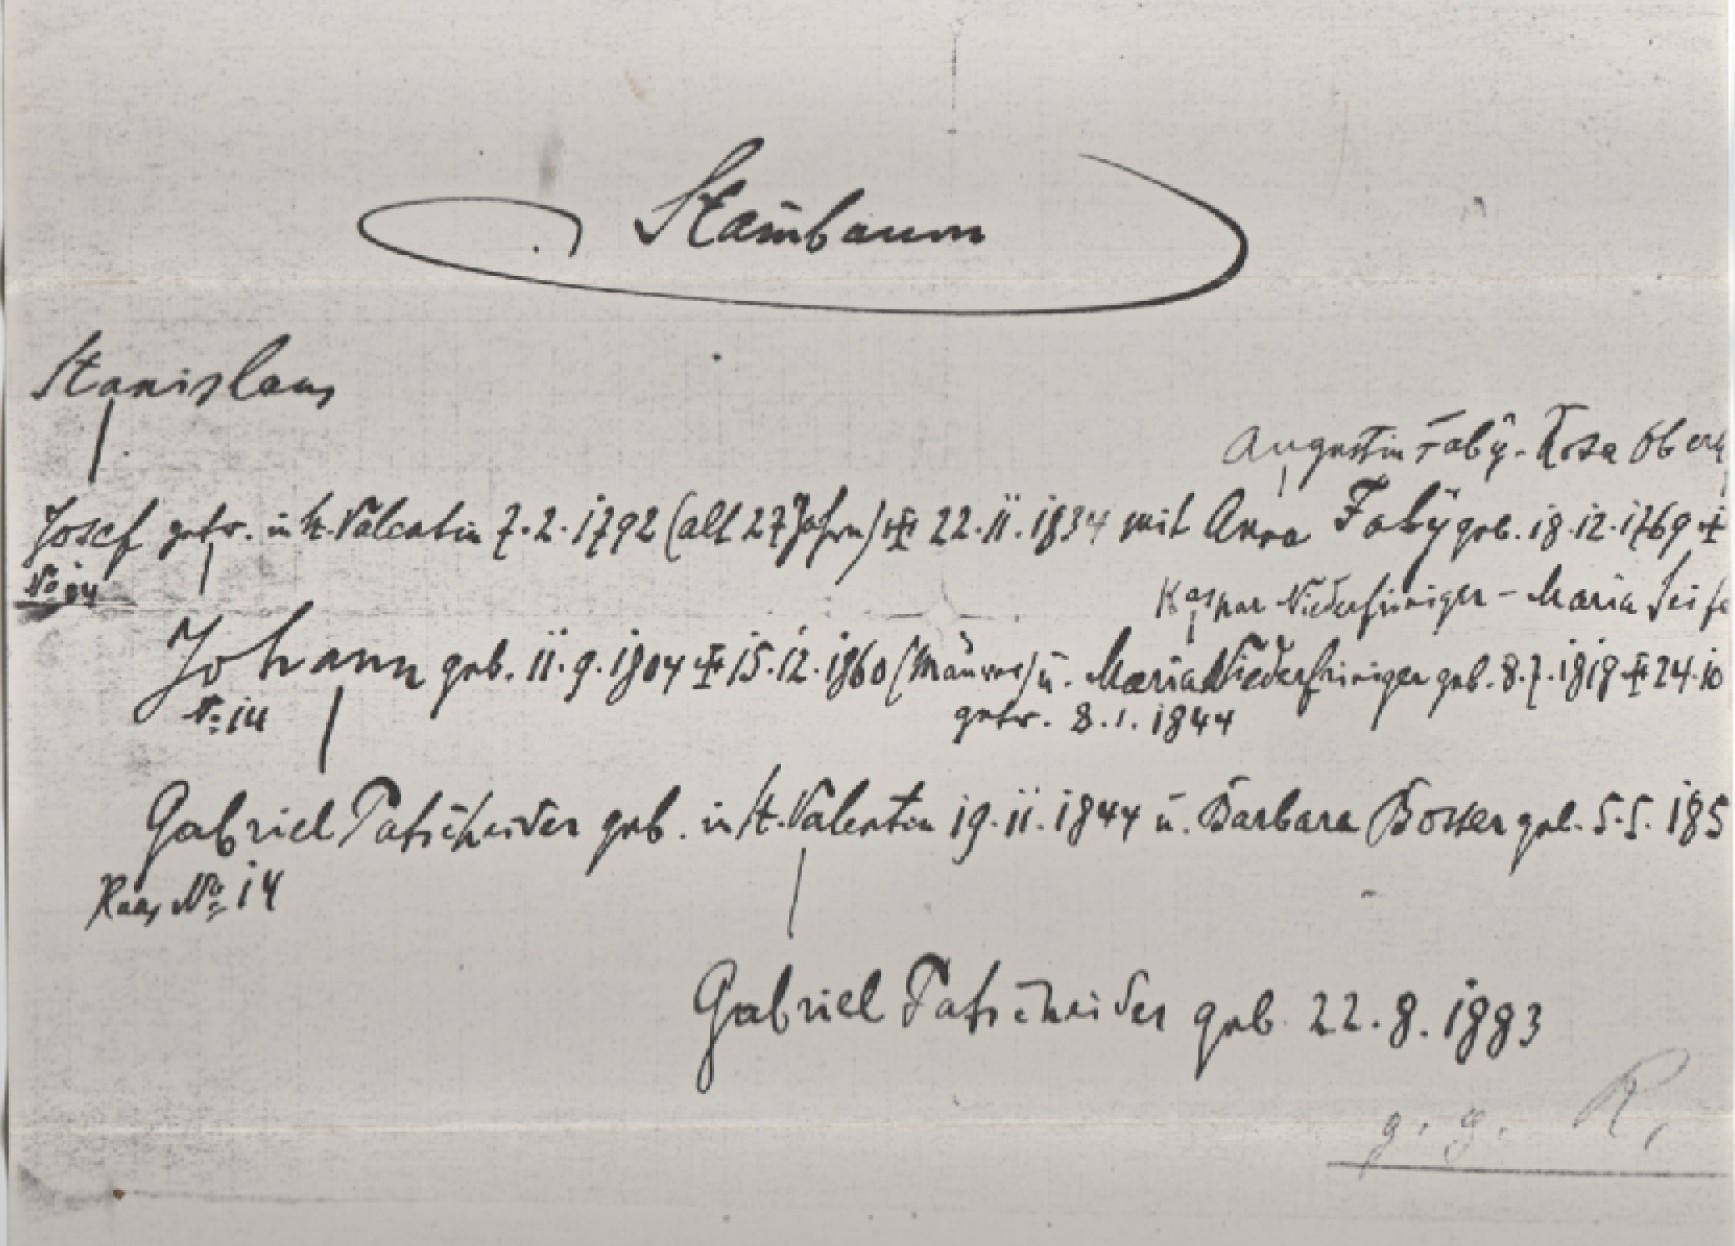 Stam̄baum
Stanislaus
Augustin Faby - Rosa Ober
Josef getr. in St. Valentin 7.2.1792 (alt 27 Jahre) ✝ 22.11.1834 mit Anna Fabÿ geb. 18.12.1769 ✝
No 14
Kaspar Niederfriniger - Maria
Johann geb. 11.9.1804 ✝ 15.12.1860 (Maurer) u. Maria Niederfriniger geb. 8.7.1818 ✝ 24.10
No 14
getr. 8.1.1844
Gabriel Patscheider geb. in St. Valentin 19.11.1844 u. Barbara geb. 5.5.185
No 14
Gabriel Patscheider geb. 22.8.1883
g. g. R.